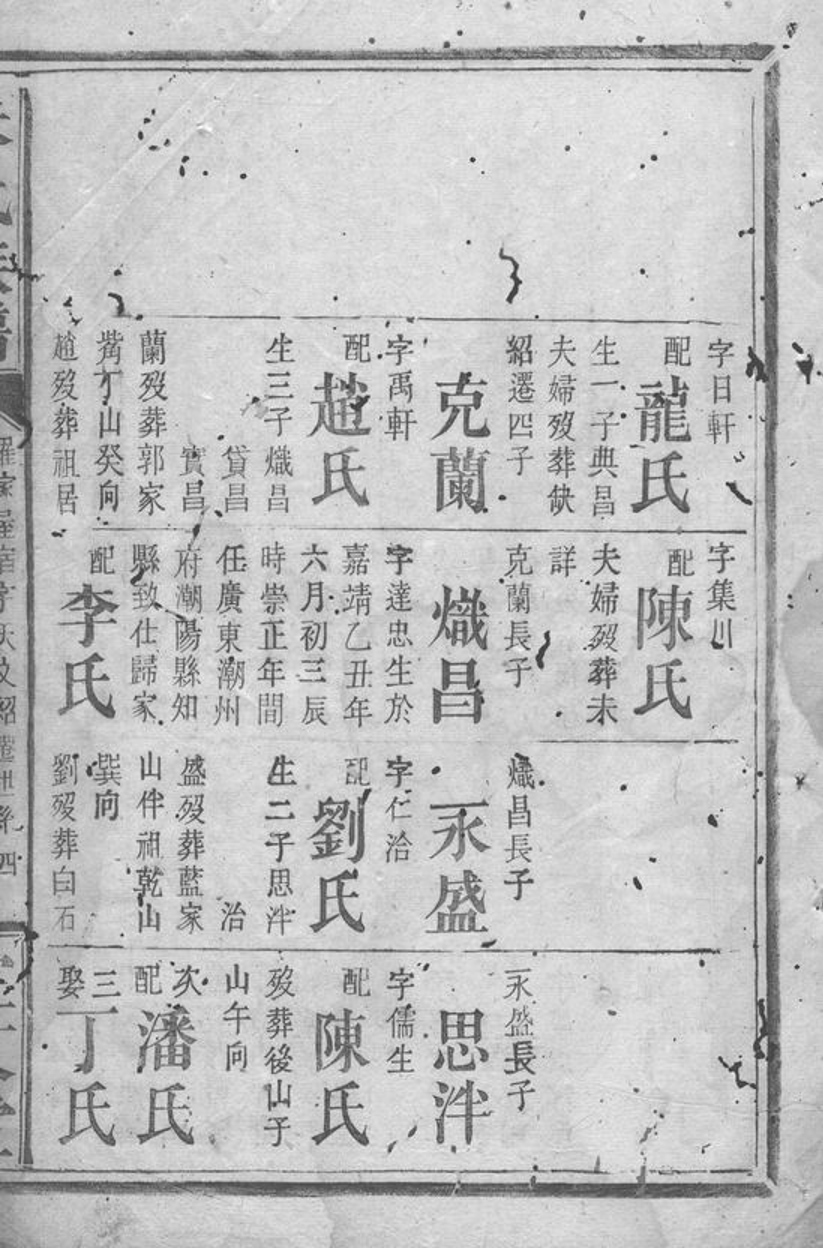 字日軒
配龍氏
生一子典昌
夫婦歿葬缺
紹遷四子
克蘭
字禹軒
配趙氏
生三子熾昌
貸昌
實昌
蘭歿葬郭家
嘴丁山癸向
趙歿葬祖居
字集川
配陳氏
夫婦歿葬未
詳
克蘭長子
熾昌
字達忠生於
嘉靖乙丑年
六月初三辰
時崇正年間
任廣東潮州
府潮陽縣知
縣致仕歸家
配李氏
熾昌長子
永盛
字仁洽
配劉氏
生二子思泮
治
盛歿葬藍家
山伴祖乾山
巽向
劉歿葬白石
永盛長子
思泮
字儒生
配陳氏
歿葬後山子
山午向
次配潘氏
三娶丁氏